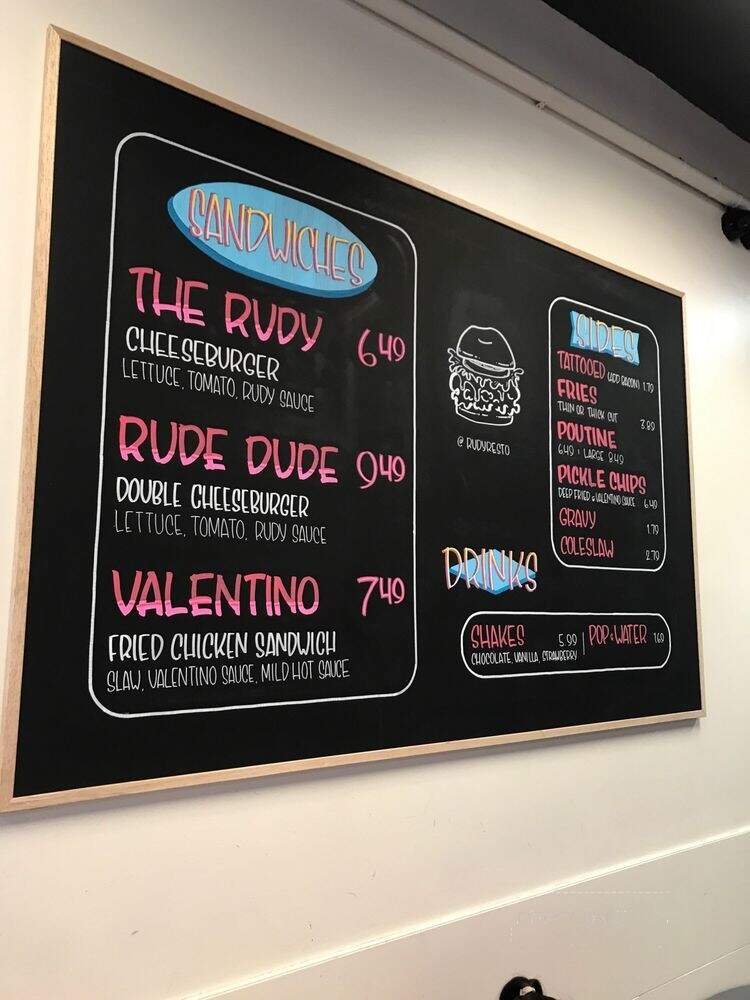 SANDWICHES
THE RUDY 6.49
CHEESEBURGER
LETTUCE, TOMATO, RUDY SAUCE
RUDE DUDE 9.49
DOUBLE CHEESEBURGER
LETTUCE, TOMATO, RUDY SAUCE
VALENTINO 7.49
FRIED CHICKEN SANDWICH
SLAW, VALENTINO SAUCE, MILD HOT SAUCE
@RUDYRESTO
SIDES
TATTOOED (ADD BACON) 1.79
FRIES
THIN OR THICK CUT 3.89
POUTINE
6.49 | LARGE 8.49
PICKLE CHIPS
DEEP FRIED & VALENTINO SAUCE 6.49
GRAVY 1.79
COLESLAW 2.79
DRINKS
SHAKES 5.99 | POP & WATER 1.69
CHOCOLATE, VANILLA, STRAWBERRY